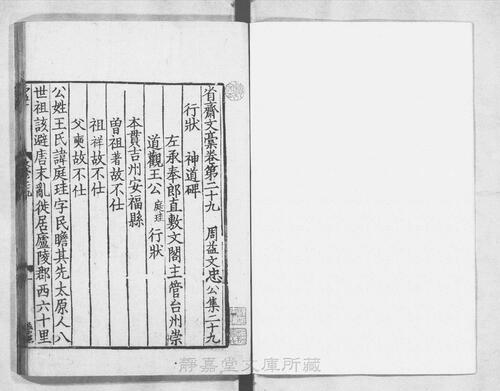 省齋文稾卷第二十九　周益文忠公集二十九
行狀　神道碑
左承奉郎直敷文閣主管台州崇
道觀王公庭珪行狀
本貫吉州安福縣
曾祖著故不仕
祖祥故不仕
父奭故不仕
公姓王氏諱庭珪字民瞻其先太原人八
世祖該避唐末亂徙居廬陵郡西六十里
静嘉堂文庫所藏